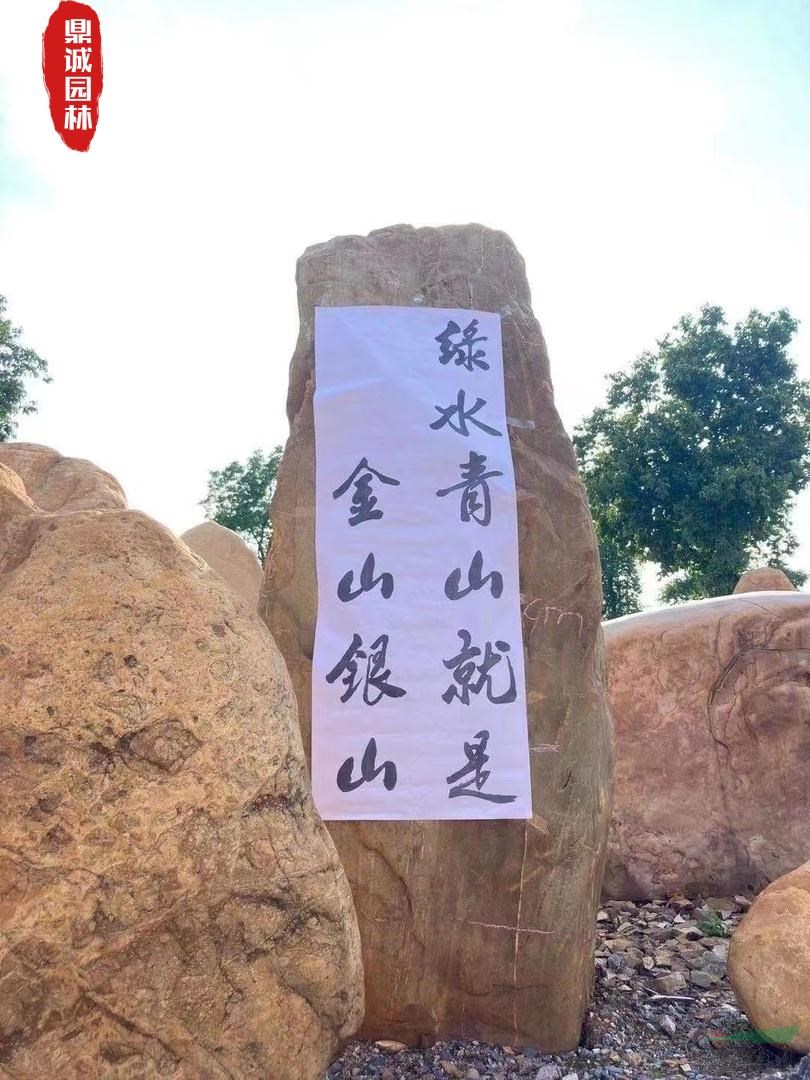 鼎诚园林
綠水青山就是
金山银山